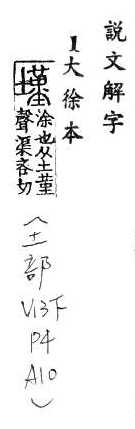 說文解字
1大徐本
墐 涂也从土堇
聲渠吝切
(土部 V13下 P4 A10)